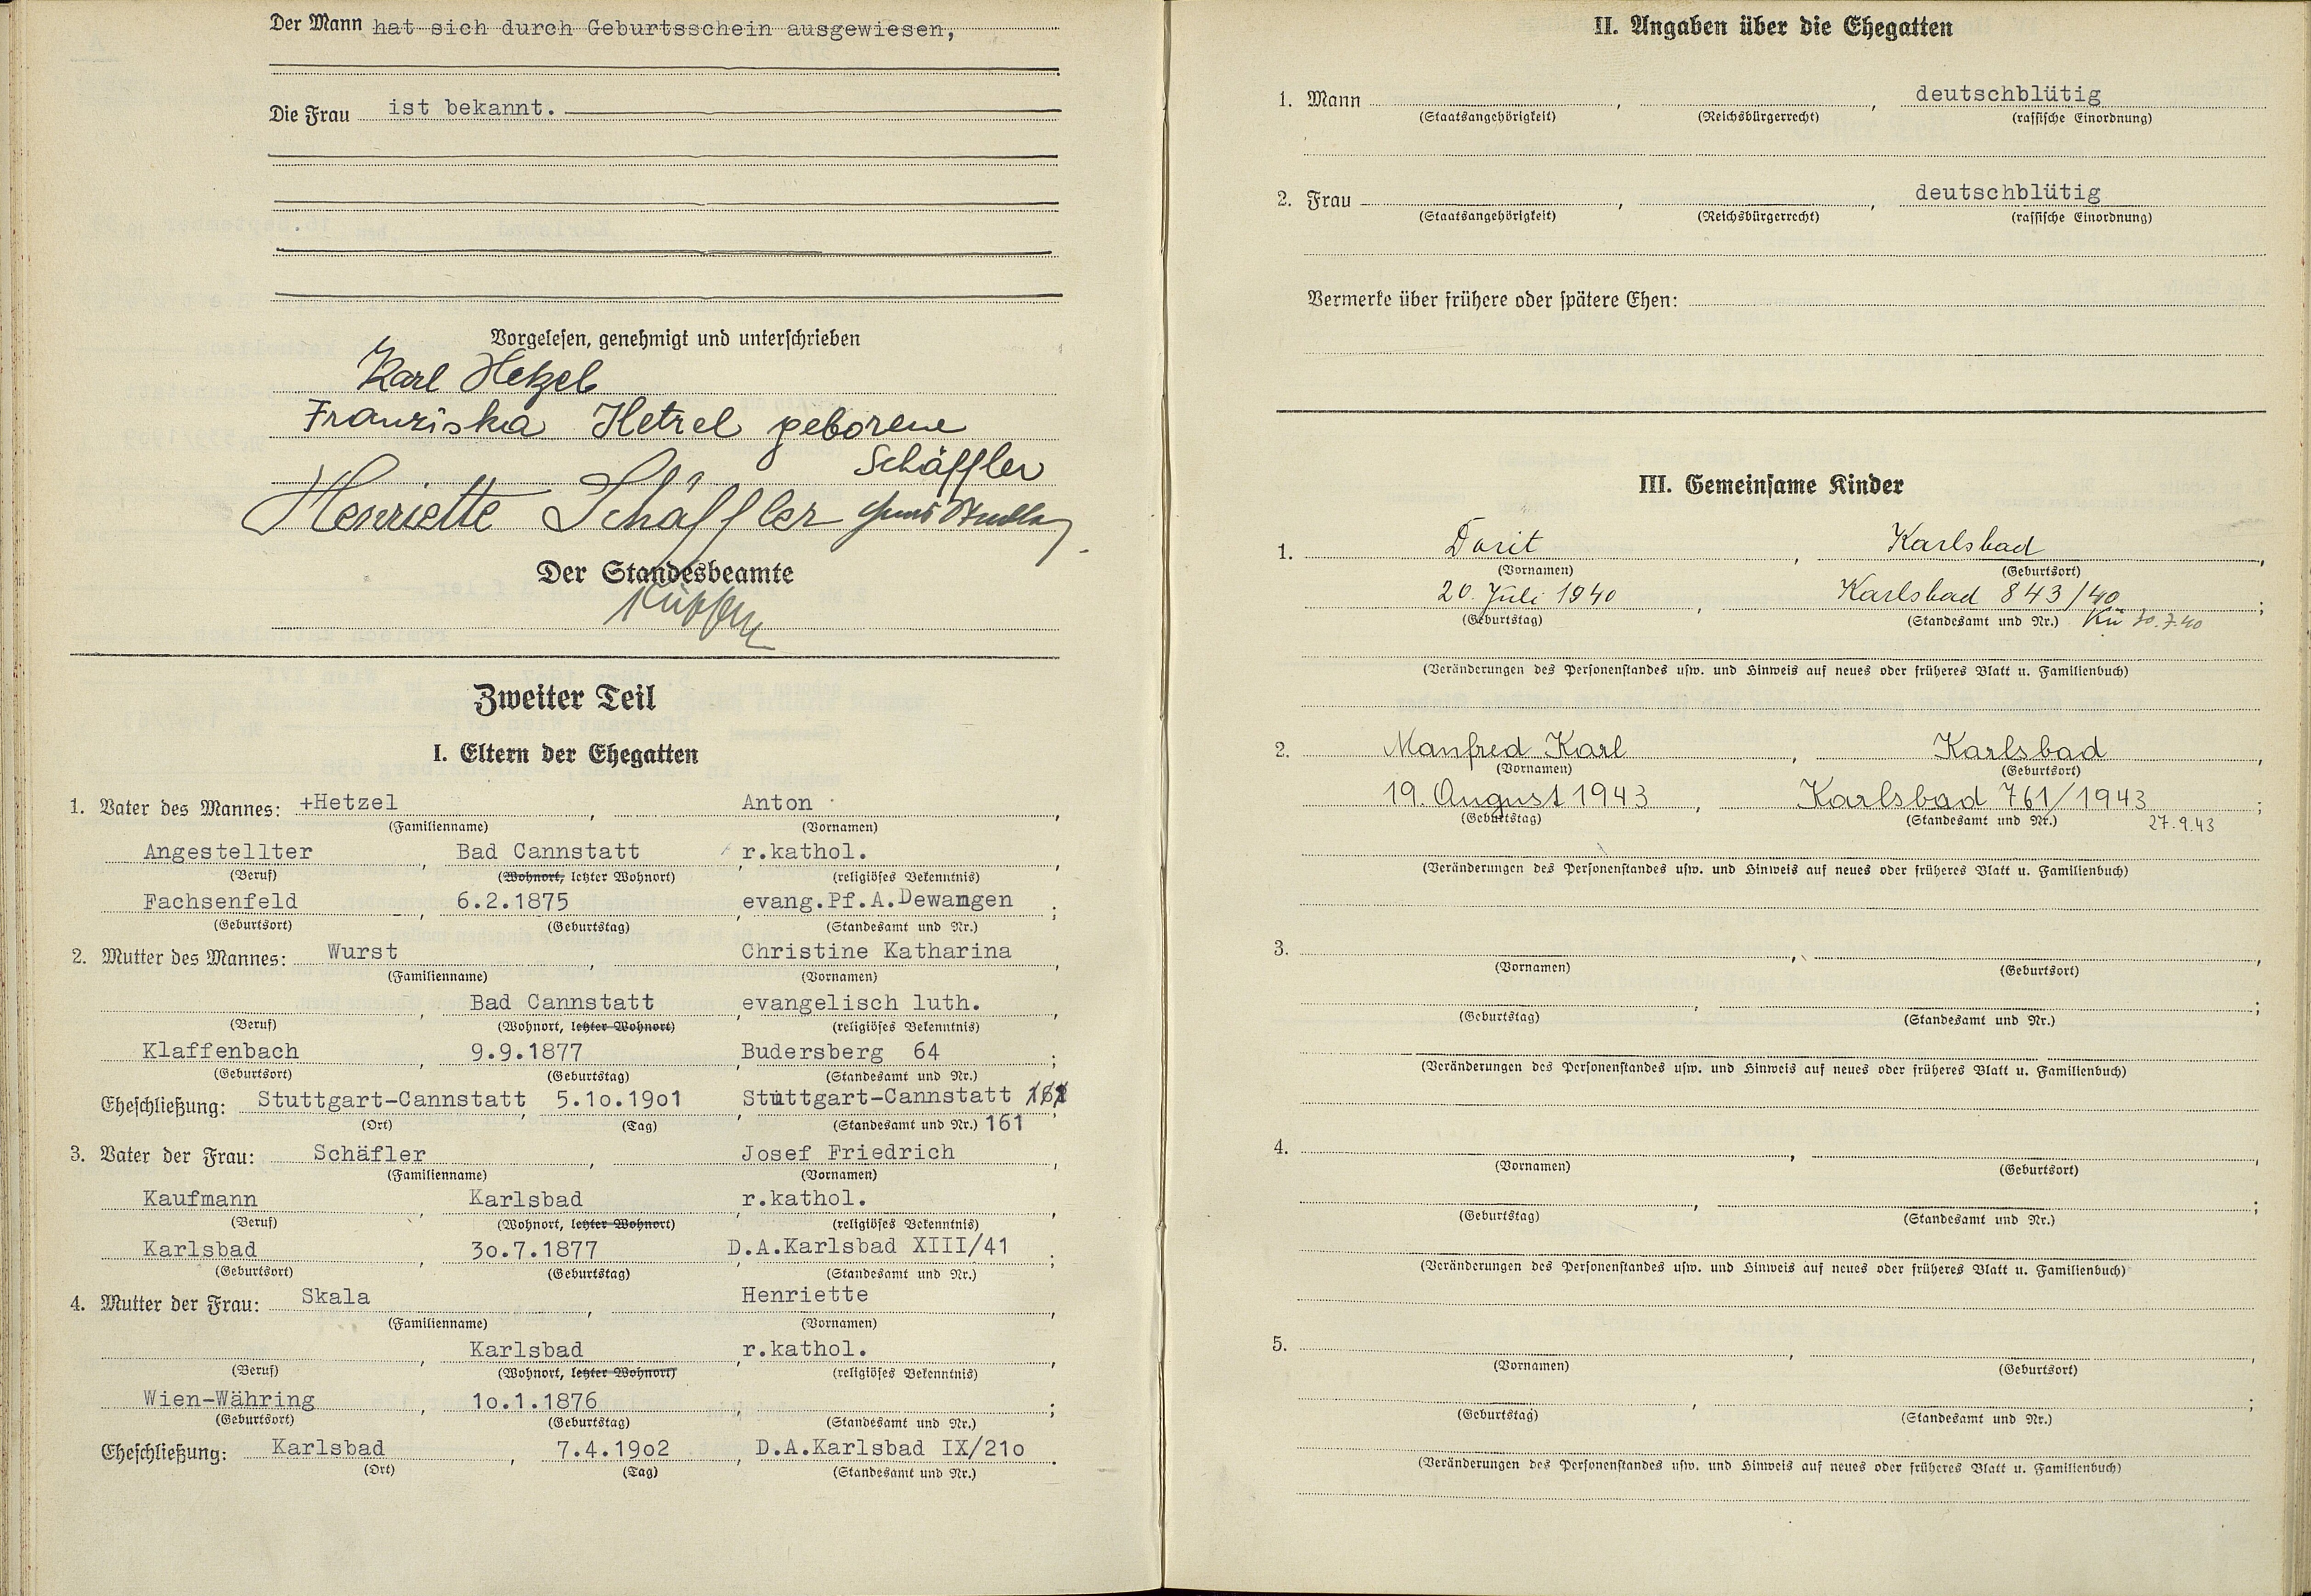 Der Mann hat sich durch Geburtsschein ausgewiesen,
Die Frau ist bekannt.
Vorgelesen, genehmigt und unterschrieben
Karl Hetzel
Franziska Hetzel geborene
Schäffler
Henriette Schäffler
Der Standesbeamte
Zweiter Teil
I. Eltern der Ehegatten
1. Vater des Mannes: +Hetzel, Anton,
(Familienname) (Vornamen)
Angestellter, Bad Cannstatt, r.kathol.,
(Beruf) (Wohnort, letzter Wohnort) (religiöses Bekenntnis)
Fachsenfeld, 6.2.1875, evang.Pf.A.Dewangen;
(Geburtsort) (Geburtstag) (Standesamt und Nr.)
2. Mutter des Mannes: Wurst, Christine Katharina,
(Familienname) (Vornamen)
, Bad Cannstatt, evangelisch luth.,
(Beruf) (Wohnort, letzter Wohnort) (religiöses Bekenntnis)
Klaffenbach, 9.9.1877, Budersberg 64;
(Geburtsort) (Geburtstag) (Standesamt und Nr.)
Eheschließung: Stuttgart-Cannstatt, 5.1o.19o1, Stuttgart-Cannstatt
(Ort) (Tag) (Standesamt und Nr.) 161
3. Vater der Frau: Schäfler, Josef Friedrich,
(Familienname) (Vornamen)
Kaufmann, Karlsbad, r.kathol.,
(Beruf) (Wohnort, letzter Wohnort) (religiöses Bekenntnis)
Karlsbad, 3o.7.1877, D.A.Karlsbad XIII/41;
(Geburtsort) (Geburtstag) (Standesamt und Nr.)
4. Mutter der Frau: Skala, Henriette,
(Familienname) (Vornamen)
, Karlsbad, r.kathol.,
(Beruf) (Wohnort, letzter Wohnort) (religiöses Bekenntnis)
Wien-Währing, 1o.1.1876, ;
(Geburtsort) (Geburtstag) (Standesamt und Nr.)
Eheschließung: Karlsbad, 7.4.19o2, D.A.Karlsbad IX/21o.
(Ort) (Tag) (Standesamt und Nr.)
II. Angaben über die Ehegatten
1. Mann , , deutschblütig
(Staatsangehörigkeit) (Reichsbürgerrecht) (rassische Einordnung)
2. Frau , , deutschblütig
(Staatsangehörigkeit) (Reichsbürgerrecht) (rassische Einordnung)
Vermerke über frühere oder spätere Ehen:
III. Gemeinsame Kinder
1. Dorit, Karlsbad,
(Vornamen) (Geburtsort)
20. Juli 1940, Karlsbad 843/40;
(Geburtstag) (Standesamt und Nr.) Kü 30.7.40
(Veränderungen des Personenstandes usw. und Hinweis auf neues oder früheres Blatt u. Familienbuch)
2. Manfred Karl, Karlsbad,
(Vornamen) (Geburtsort)
19. August 1943, Karlsbad 761/1943;
(Geburtstag) (Standesamt und Nr.) 27.9.43
(Veränderungen des Personenstandes usw. und Hinweis auf neues oder früheres Blatt u. Familienbuch)
3. , ,
(Vornamen) (Geburtsort)
, ;
(Geburtstag) (Standesamt und Nr.)
(Veränderungen des Personenstandes usw. und Hinweis auf neues oder früheres Blatt u. Familienbuch)
4. , ,
(Vornamen) (Geburtsort)
, ;
(Geburtstag) (Standesamt und Nr.)
(Veränderungen des Personenstandes usw. und Hinweis auf neues oder früheres Blatt u. Familienbuch)
5. , ,
(Vornamen) (Geburtsort)
, ;
(Geburtstag) (Standesamt und Nr.)
(Veränderungen des Personenstandes usw. und Hinweis auf neues oder früheres Blatt u. Familienbuch)